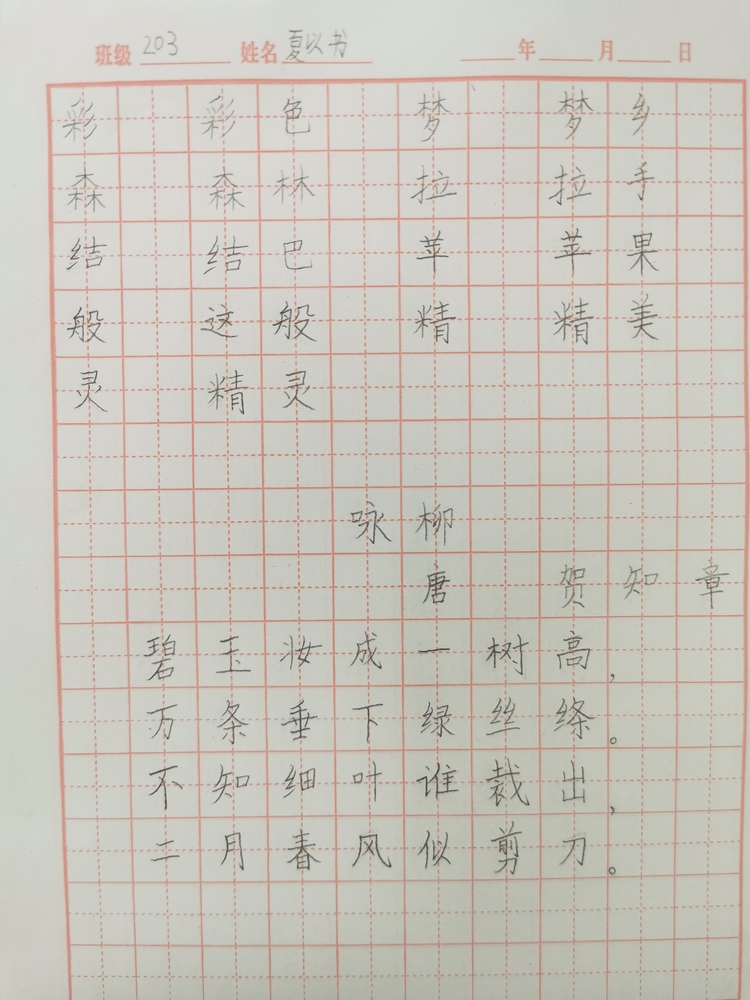 班级 203 姓名 夏以书 年 月 日
彩 彩色 梦 梦乡
森 森林 拉 拉手
结 结巴 苹 苹果
般 这般 精 精美
灵 精灵
咏柳
唐 贺知章
碧玉妆成一树高,
万条垂下绿丝绦。
不知细叶谁裁出,
二月春风似剪刀。